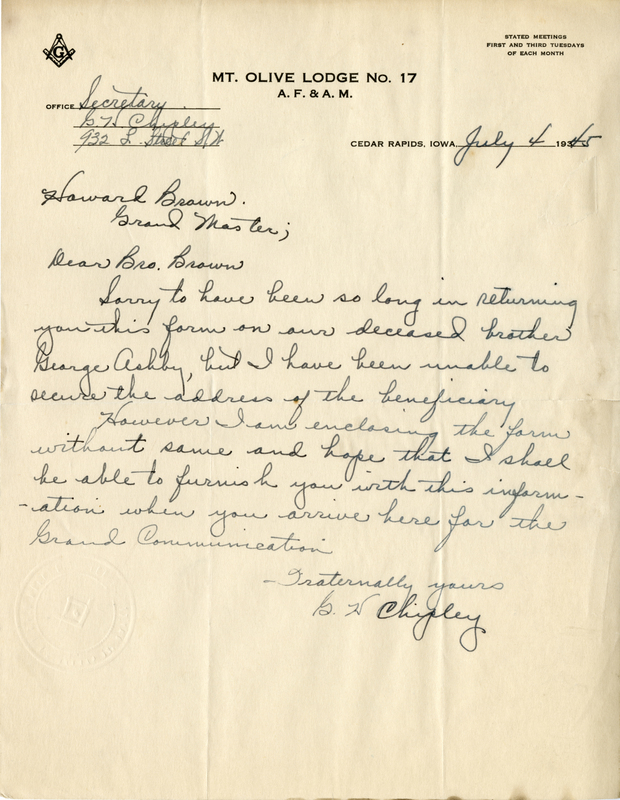 G
STATED MEETINGS
FIRST AND THIRD TUESDAYS
OF EACH MONTH
MT. OLIVE LODGE NO. 17
A. F. & A. M.
OFFICE Secretary
G W Chipley
932 L Street S.W
CEDAR RAPIDS, IOWA, July 4 1945
Howard Brown.
Grand Master;
Dear Bro. Brown
Sorry to have been so long in returning
you this form on our deceased brother
George Ashby, but I have been unable to
secure the address of the beneficiary
However I am enclosing the form
without same and hope that I shall
be able to furnish you with this inform-
-ation when you arrive here for the
Grand Communication
-Fraternally yours
G. W Chipley